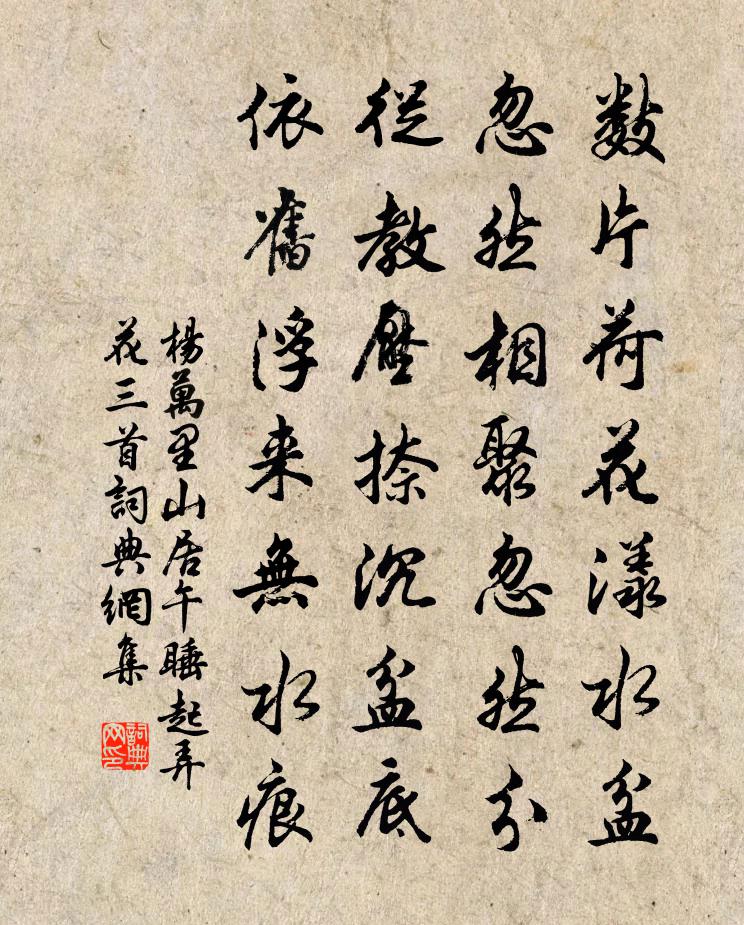 數片荷花漾水盆
忽然相聚忽然分
從教壓捺沉盆底
依舊浮來無水痕
楊萬里山居午睡起弄
花三首詞典網集
詞典网印